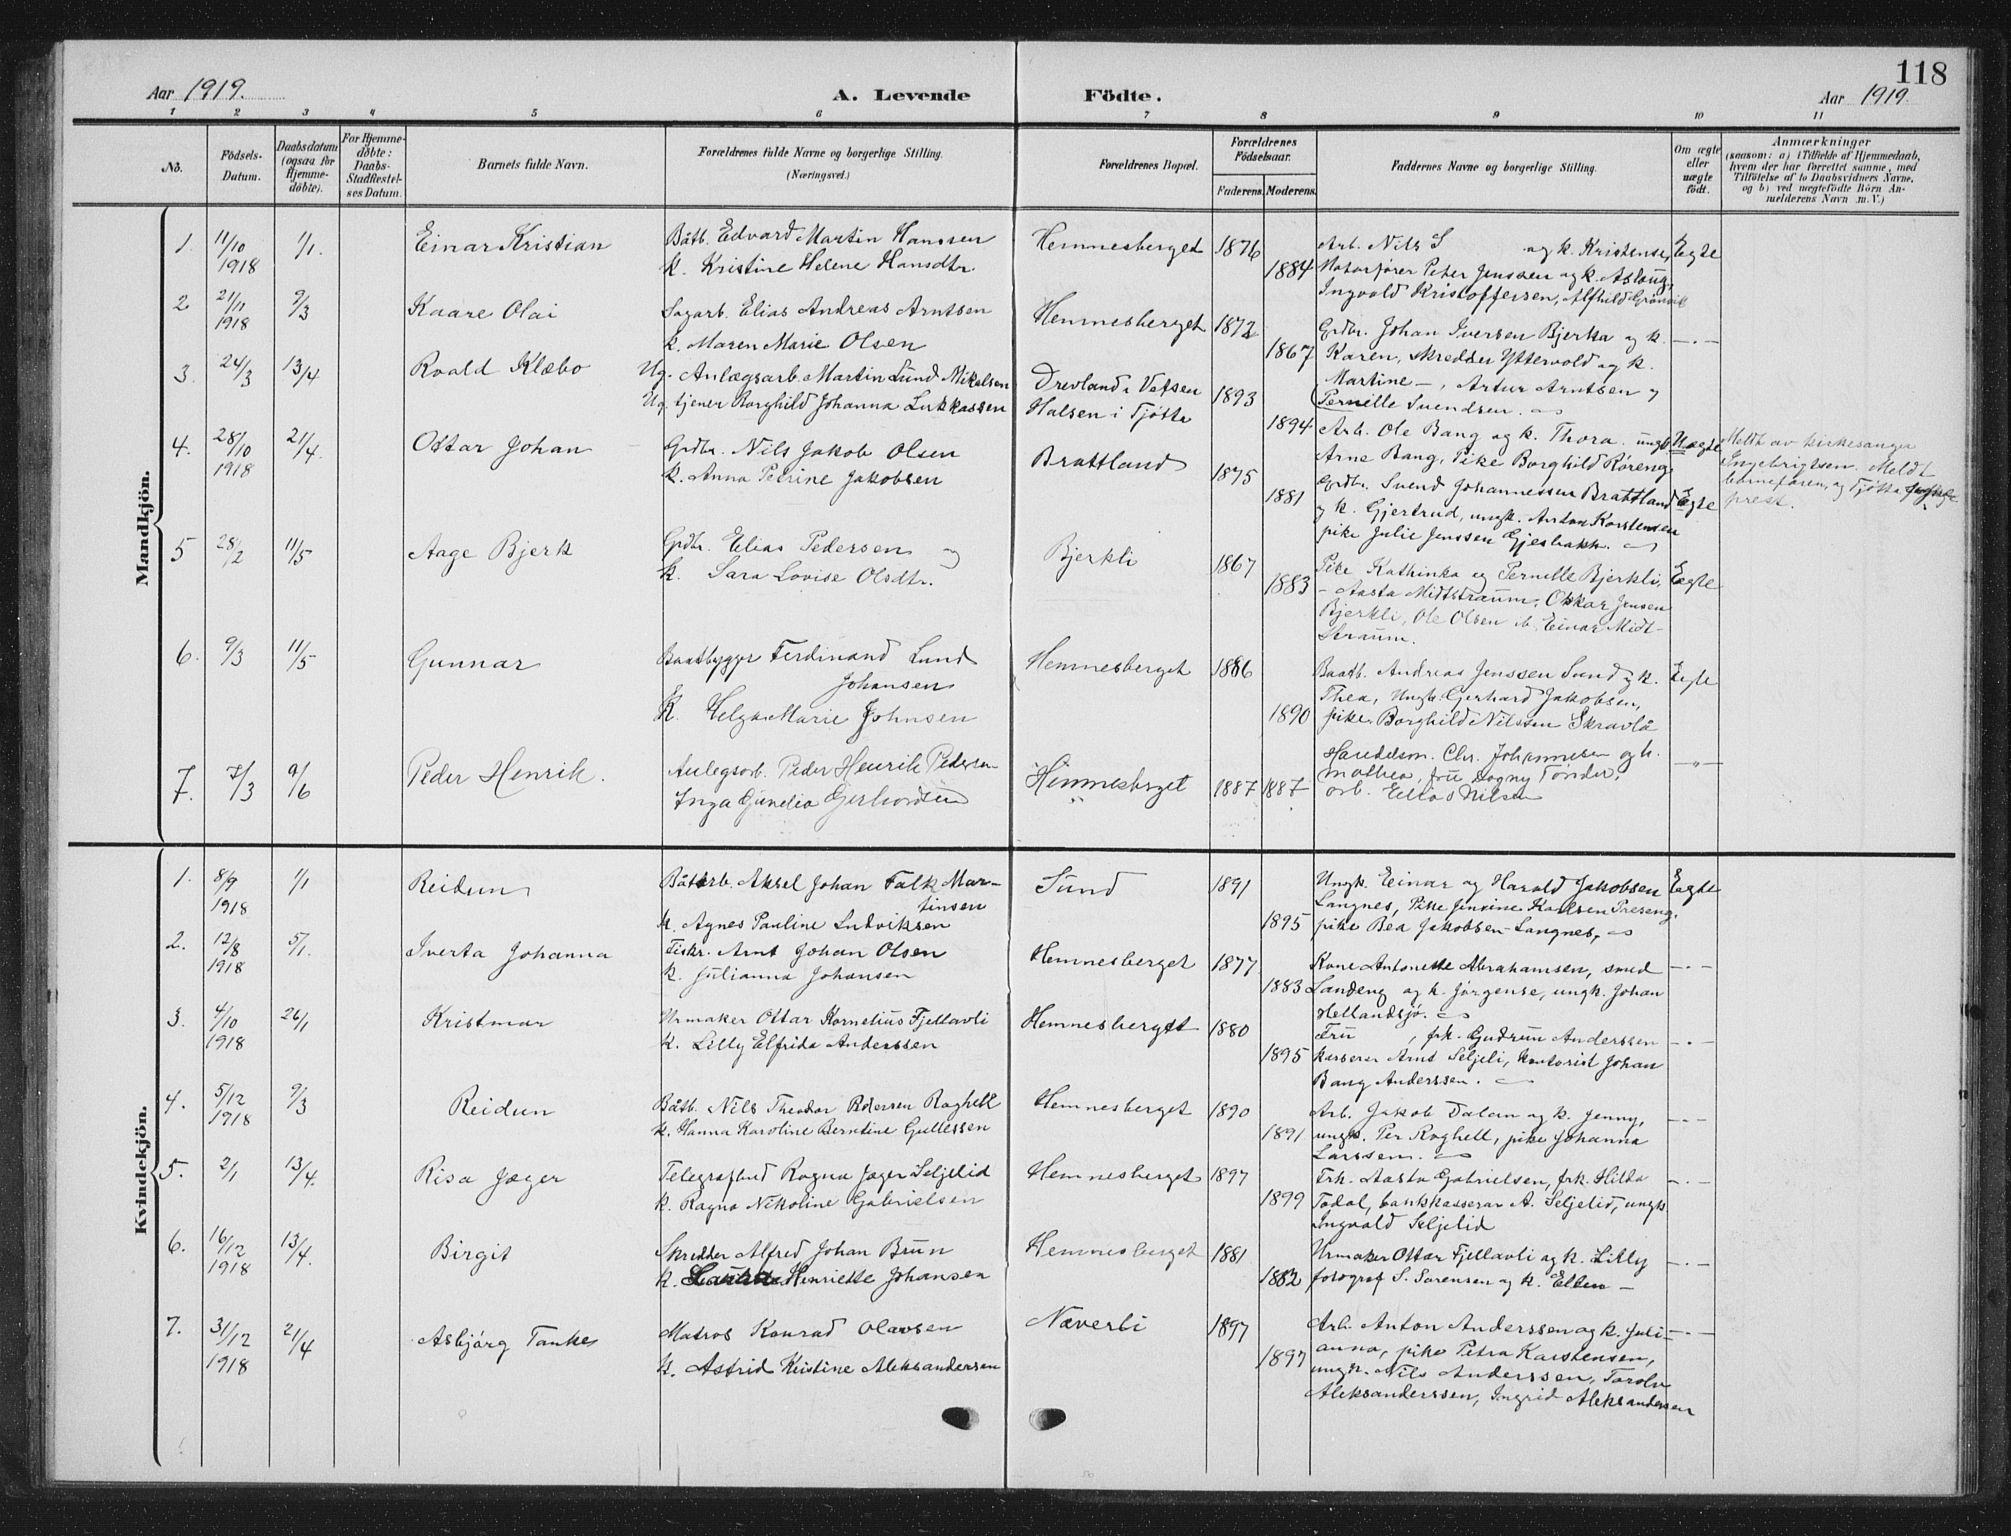 118
Aar 1919. A. Levende Födte. Aar 1919.
1 2 3 4 5 6 7 8 9 10 11
No. Födsels-Datum. Daabsdatum (ogsaa for Hjemmedöbte). For Hjemmedöbte: Daabs-Stadfæstelses Datum. Barnets fulde Navn. Forældrenes fulde Navne og borgerlige Stilling. (Næringsvei.) Forældrenes Bopæl. Forældrenes Födselsaar. Faderens. Moderens. Faddernes Navne og borgerlige Stilling. Om ægte eller uægte födt. Anmærkninger (saasom: a) i Tilfælde af Hjemmedaab, hvem der har forrettet samme, med Tilföielse af to Daabsvidners Navne, og b) ved uægtefödte Börn Anmelderens Navn m. V.)
Mandkjön.
1. 11/10 1918 1/1. Einar Kristian Båtb. Edvard Martin Hanssen Hemnesberget 1876 Arb. Nils S og k. Kristense, Egte
k. Kristine Helene Hansdtr. 1884 Motorfører Peter Jenssen og k. Aslaug,
Ingvald Kristoffersen, Alfhild Grønvik
2 21/11 1918 9/3 Kaare Olai Sagarb. Elias Andreas Arntsen Hemnesberget 1872 Grdbr. Johan Iversen Bjerka og k. —·—
k. Maren Marie Olsen 1867 Karen, Skredder Yttervold og k.
Martine —, Artur Arntsen og
Pernille Svendsen.
3. 24/3 13/4 Roald Klæbo Ug. Anlægsarb. Martin Lund Mikalsen Drevland i Vefsen 1893
Ug. tjener Borghild Johanna Lukkassen Halsen i Tjøtta 1894 Arb. Ole Bang og k. Thora. ungk. Uægte Meldt av kirkesanger
Arne Bang, Pike Borghild Røreng. Ingebrigtsen. Meldt
4. 28/10 1918 21/4. Ottar Johan Grdbr. Nils Jakob Olsen Brattland 1875 barnefaren, og Tjøtta
k. Anna Petrine Jakobsen 1881 Grdbr. Svend Johannessen Brattland Egte prest.
og k. Gjertrud, ungk. Anton Karstensen
pike Julie Jenssen Gjesbakk.
5 28/2 11/5 Aage Bjerk Grdbr. Elias Pedersen og Bjerkli 1867 Pike Kathinka og Pernille Bjerkli, Egte
k. Sara Lovise Olsdtr. 1883 — Aasta Midtstraum, Oskar Jensen
Bjerkli, Ole Olsen Einar Midt-
straum.
6. 9/3 11/5 Gunnar Baatbygger Ferdinand Lund Hemnesberget 1886 Baatb. Andreas Jenssen Sund og k. Egte
Johansen Thea, Ungk. Gerhard Jakobsen,
k. Helga Marie Johnsen 1890 pike Borghild Nilssen Skravlå
7. 7/3 9/6 Peder Henrik. Anlegsarb. Peder Henrik Pedersen Hemnesberget 1887 1887 Handelsm. Chr. Johannesen og h. —"—
Inga Gunelia Gerhardsen Mathea, frü Dagny Tønder,
arb. Elias Nilsen
Kvindekjön.
1. 8/9 1918 1/1 Reidun Båtarb. Aksel Johan Falk Mar- Sund 1891 Ungk. Einar og Harald Jakobsen Egte
tinsen Langnes, Pike Jensine Karlsen Preseng.
k. Agnes Pauline Ludviksen 1895 pike Bea Jakobsen Langnes,
2. 12/8 1918 5/1. Iverta Johanna Fiskr. Arnt Johan Olsen Hemnesberget 1877 Kone Antonette Abrahamsen, smed —·—
k. Julianna Johansen 1883 Landeng og k. Jørgense, ungk. Johan
Hellandsjø.
3. 4/10 1918 26/1 Kristmar Urmaker Ottar Kornelius Fjellavli Hemnesberget 1880 Frü , frk. Gudrun Anderssen —·—
k. Lilly Elfrida Anderssen 1895 kasserer Arnt Seljeli, kontorist Johan
Bang Anderssen.
4. 5/12 1918 9/3 Reidun Båtb. Nils Theodor Pedersen Røghell Hemnesberget 1890 Arb. Jakob Dalan og k. Jenny, —·—
k. Hanna Karoline Berntine Gullessen 1891 ungk. Per Røghell, pike Johanna
Larssen.
5. 2/1 13/4. Risa Jæger Telegrafbud Ragna Jæger Seljelid Hemnesberget 1897 Frk. Aasta Gabrielsen, frk. Hilda —·—
k. Ragna Nikoline Gabrielsen 1899 Todal, bankkasserer A. Seljelid, ungk.
Ingvald Seljelid
6. 16/12 1918 13/4. Birgit Skredder Alfred Johan Brun Hemnesberget 1881 Urmaker Ottar Fjellavli og k. Lilly —·—
k. Henriette Johansen 1882 fotograf S. Sørensen og k. Ellen —
7. 31/12 1918 21/4 Asbjørg Tanke Matros Konrad Olavsen Næverli 1897 Arb. Anton Anderssen og k. Juli- —·—
k. Astrid Kristine Aleksandersen 1897 anna, pike Petra Karstensen,
ungk. Nils Anderssen, Torolv
Aleksanderssen, Ingrid Aleksandersen